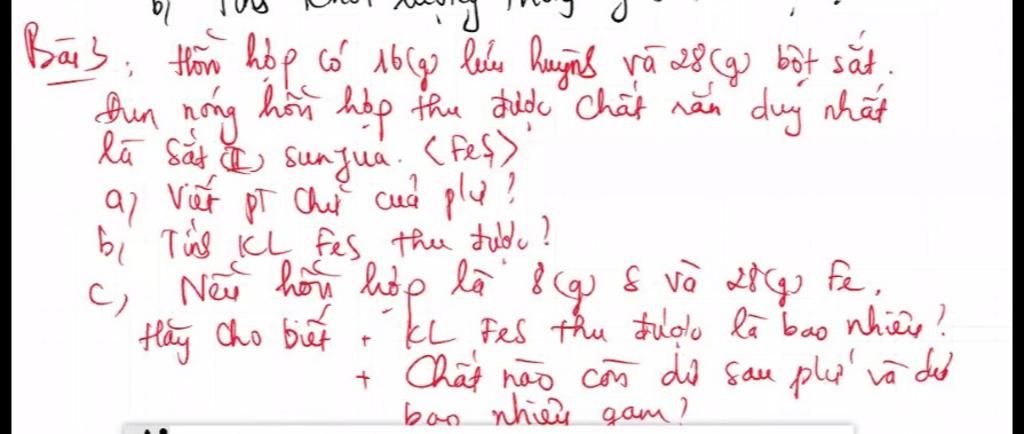 b) Tính khối lượng
Bài 3: Hỗn hợp có 16(g) lưu huỳnh và 28(g) bột sắt.
Đun nóng hỗn hợp thu được chất rắn duy nhất
là sắt (II) sunfua. <FeS>
a) Viết PT chữ của pứ?
b) Tính KL FeS thu được?
c) Nếu hỗn hợp là 8(g) S và 28(g) Fe.
Hãy cho biết + KL FeS thu được là bao nhiêu?
+ Chất nào còn dư sau pứ và dư
bao nhiêu gam?